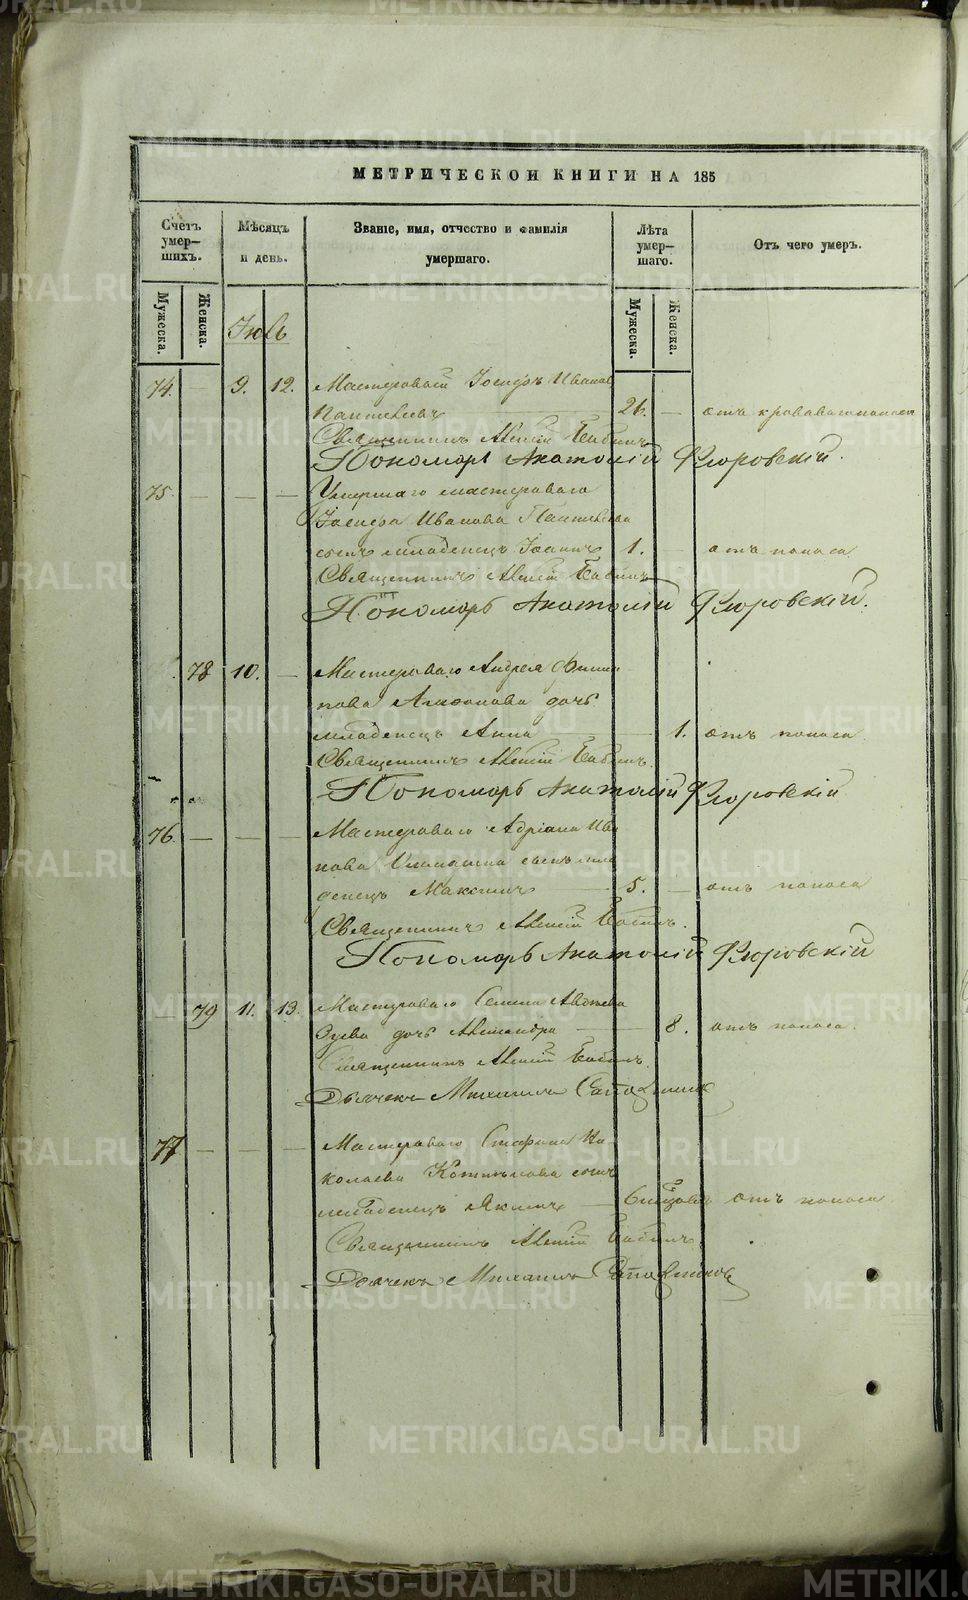 МЕТРИЧЕСКОЙ КНИГИ НА 185
Счетъ умер-шихъ.
Мѣсяцъ и день.
Званіе, имя, отчество и фамилія умершаго.
Лѣта умер-шаго.
Отъ чего умеръ.
Мужеска.
Женска.
Мужеска.
Женска.
Іюль
74. — 9. 12. Мастеровой Іосифъ Иванов
26. — отъ кроваваго поноса
Священникъ Алексій Бабинъ
Пономарь Анатолій Флоровскій.
75. — — — Умершаго мастероваго
Іосифа Иванова
сынъ младенецъ Іоаннъ 1. отъ поноса
Священникъ Алексій Бабинъ
Пономарь Анатолій Флоровскій.
78 10. — Мастероваго Андрея Филип
пова дочь
младенецъ Анна — 1. отъ поноса
Священникъ Алексій Бабинъ.
Пономарь Анатолій Флоровскій
76. — — — Мастероваго Адріана Ива
нова сынъ мла
денецъ Максимъ — 5. — отъ поноса
Священникъ Алексій Бабинъ.
Пономарь Анатолій Флоровскій
79 11. 13. Мастероваго Семена
Зуева дочь Александра — 8. отъ поноса.
Священникъ Алексій Бабинъ.
Дьячекъ Михаилъ
77 — — — Мастероваго Стефана Ни
колаева сынъ
младенецъ Якимъ — отъ поноса.
Священникъ Алексій Бабинъ
Дьячекъ Михаилъ
METRIKI.GASO-URAL.RU